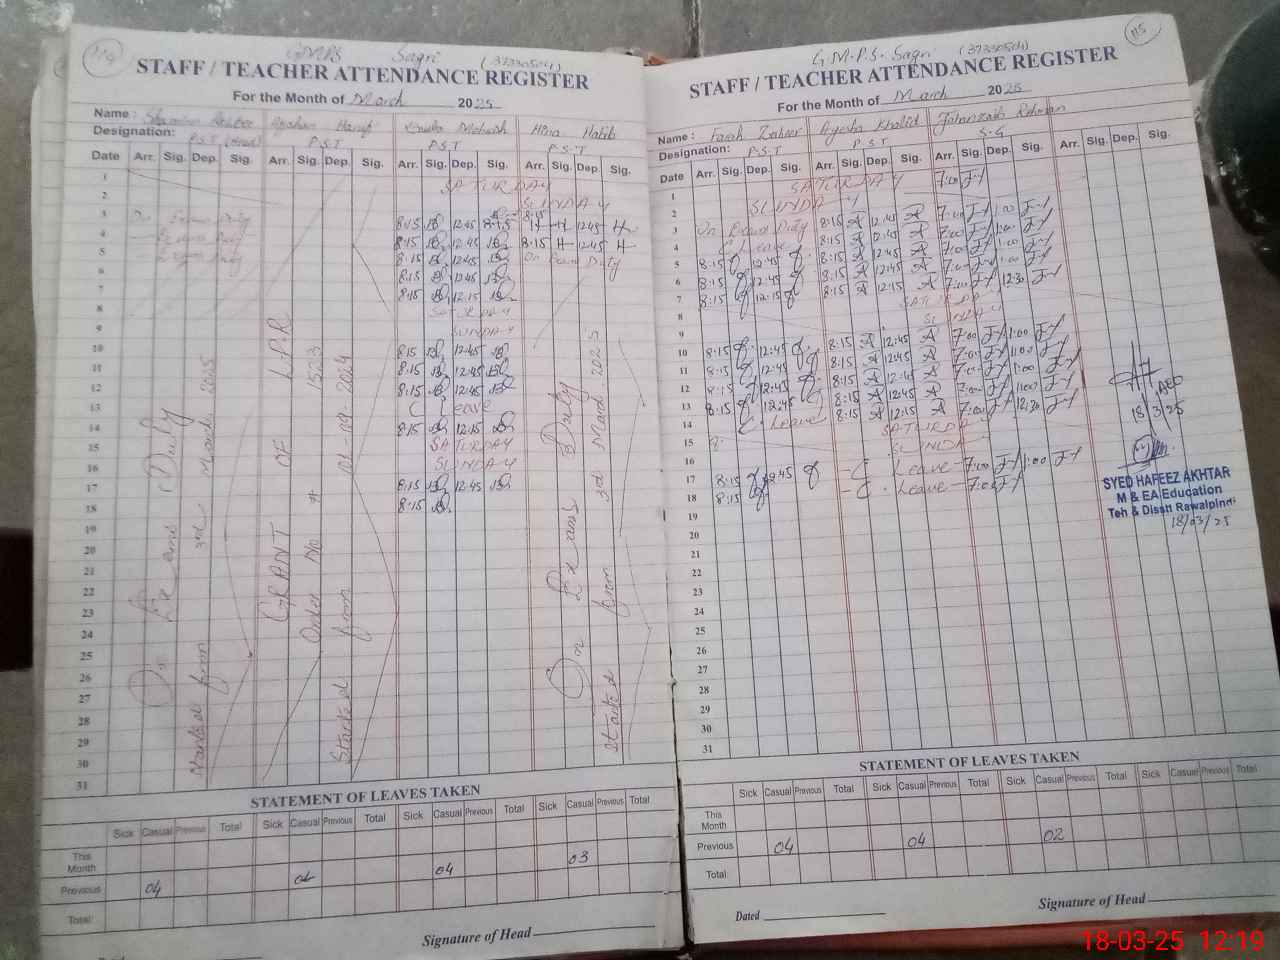 114
GMPS Sagri (37330504)
STAFF / TEACHER ATTENDANCE REGISTER
For the Month of March 2025
Name : Hanif Mehwish Hina Habib
Designation: P.S.T (Head) P.S.T P.S.T P.S.T
Date Arr. Sig. Dep. Sig. Arr. Sig. Dep. Sig. Arr. Sig. Dep. Sig. Arr. Sig. Dep. Sig.
1 SATURDAY
2 SUNDAY
3 On Exam Duty 8:15 12:45 8:15
4 Exam Duty 8:15 12:45 8:15 H 12:45 H
5 Exam Duty 8:15 12:45 On Exam Duty
6 8:15 12:45
7 8:15 12:15
8 SATURDAY
9 SUNDAY
10 8:15 12:45
11 8:15 12:45
12 8:15 12:45
13 C Leave
14 8:15 12:15
15 SATURDAY
16 SUNDAY
17 8:15 12:45
18 8:15
19
20
21
22
23
24
25
26
27
28
29
30
31
On Exams Duty
Started from 3rd March 2025
GRANT OF L.P.R
Order No # 1523
Started from 01-09-2024
On Exams Duty
Started from 3rd March 2025
STATEMENT OF LEAVES TAKEN
Sick Casual Previous Total Sick Casual Previous Total Sick Casual Previous Total Sick Casual Previous Total
This Month 04 03
Previous 04
Total:
Signature of Head
115
G.M.P.S. Sagri (37330504)
STAFF / TEACHER ATTENDANCE REGISTER
For the Month of March 2025
Name : Farah Zaheer Ayesha Khalid Jahanzaib Rehman
Designation: P.S.T P.S.T S.G
Date Arr. Sig. Dep. Sig. Arr. Sig. Dep. Sig. Arr. Sig. Dep. Sig. Arr. Sig. Dep. Sig.
1 SATURDAY 7:00
2 SUNDAY
3 On Exam Duty 8:15 A 12:45 A 7:00 1:00
4 C Leave 8:15 A 12:45 A 7:00 1:00
5 8:15 12:45 8:15 A 12:45 A 7:00 1:00
6 8:15 12:45 8:15 A 12:45 A 7:00 1:00
7 8:15 12:15 8:15 A 12:15 A 7:00 12:30
8 SATURDAY
9 SUNDAY
10 8:15 12:45 8:15 A 12:45 A 7:00 1:00
11 8:15 12:45 8:15 A 12:45 A 7:00 1:00
12 8:15 12:45 8:15 A 12:45 A 7:00 1:00
13 8:15 12:45 8:15 A 12:45 A 7:00 1:00
14 C. Leave 8:15 A 12:15 A 7:00 12:30
15 8: SATURDAY
16 SUNDAY
17 8:15 12:45 - C Leave - 7:00 1:00
18 8:15 - C. Leave - 7:00
19
20
21
22
23
24
25
26
27
28
29
30
31
AEO
18/3/25
SYED HAFEEZ AKHTAR
M & EA Education
Teh & Distt Rawalpindi
18/03/25
STATEMENT OF LEAVES TAKEN
Sick Casual Previous Total Sick Casual Previous Total Sick Casual Previous Total Sick Casual Previous Total
This Month
Previous 04 04 02
Total:
Dated
Signature of Head
18-03-25 12:19